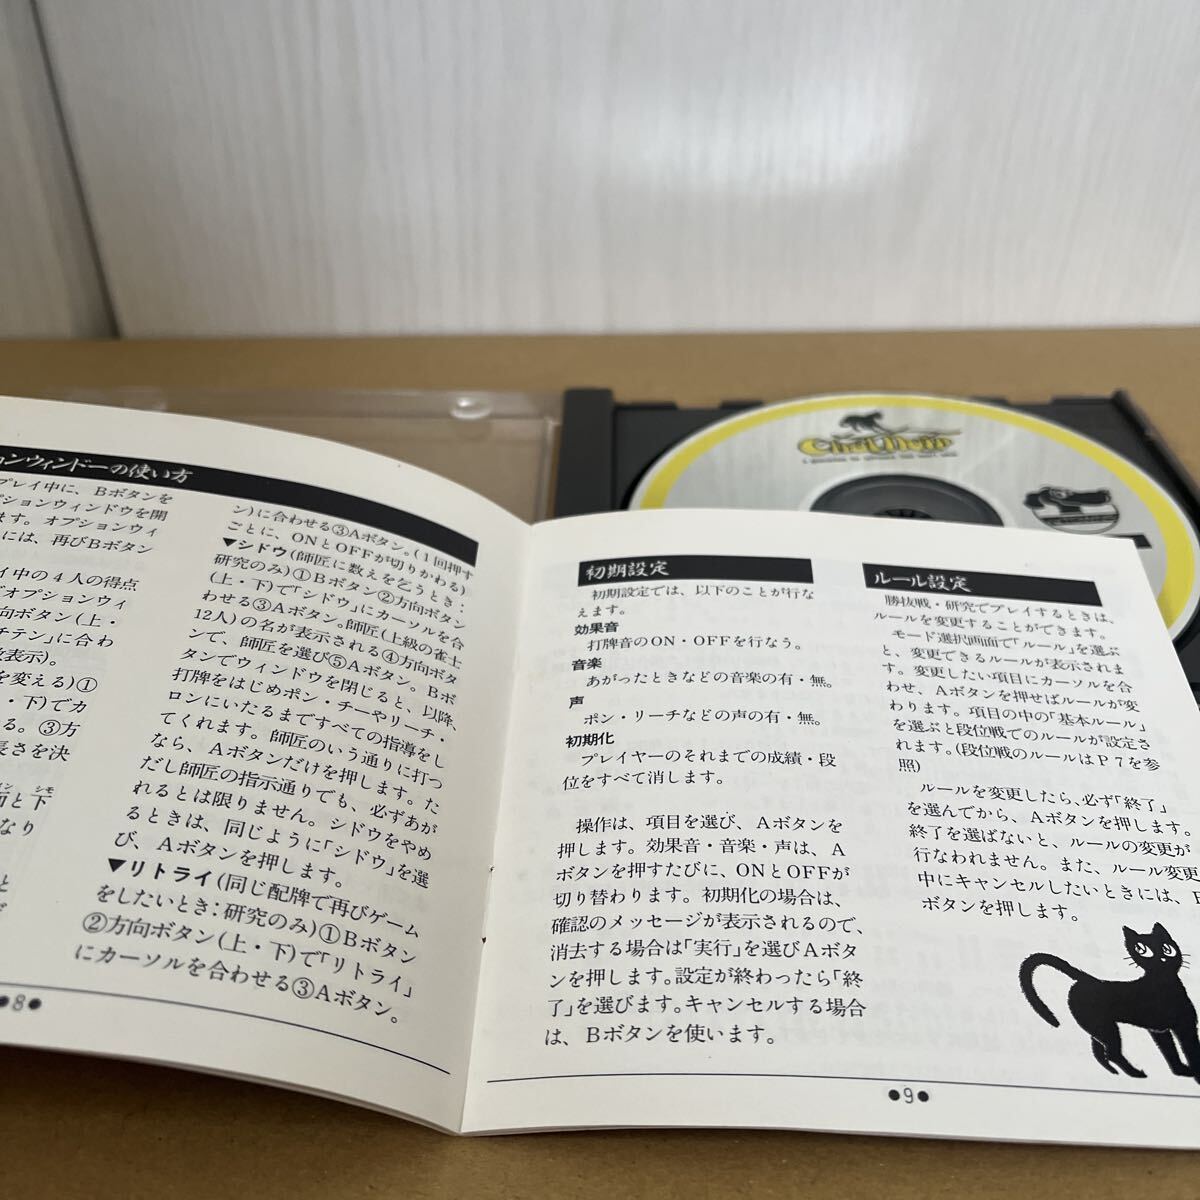 ョンウィンドーの使い方
プレイ中に、Bボタンを
プションウィンドウを開
ます。オプションウィ
には、再びBボタン
イ中の4人の得点
でオプションウィ
向ボタン(上・
チテン」に合わ
数表示)。
を変える)①
・下)でカ
る。③方
長さを決
シモ
面と下
なり
と
●8●
ン)に合わせる③Aボタン。(1回押す
ごとに、ONとOFFが切りかわる)
▼シドウ(師匠に教えを乞うとき：
研究のみ)①Bボタン②方向ボタン
(上・下)で「シドウ」にカーソルを合
わせる③Aボタン。師匠(上級の雀士
12人)の名が表示される④方向ボタ
ンで、師匠を選び⑤Aボタン。Bボ
タンでウィンドウを閉じると、以降、
打牌をはじめポン・チーやリーチ・
ロンにいたるまですべての指導をし
てくれます。師匠のいう通りに打つ
なら、Aボタンだけを押します。た
だし師匠の指示通りでも、必ずあが
れるとは限りません。シドウをやめ
るときは、同じように「シドウ」を選
び、Aボタンを押します。
▼リトライ(同じ配牌で再びゲーム
をしたいとき：研究のみ)①Bボタン
②方向ボタン(上・下)で「リトライ」
にカーソルを合わせる③Aボタン。
初期設定
初期設定では、以下のことが行な
えます。
効果音
打牌音のON・OFFを行なう。
音楽
あがったときなどの音楽の有・無。
声
ポン・リーチなどの声の有・無。
初期化
プレイヤーのそれまでの成績・段
位をすべて消します。
操作は、項目を選び、Aボタンを
押します。効果音・音楽・声は、A
ボタンを押すたびに、ONとOFFが
切り替わります。初期化の場合は、
確認のメッセージが表示されるので、
消去する場合は「実行」を選びAボタ
ンを押します。設定が終わったら「終
了」を選びます。キャンセルする場合
は、Bボタンを使います。
ルール設定
勝抜戦・研究でプレイするときは、
ルールを変更することができます。
モード選択画面で「ルール」を選ぶ
と、変更できるルールが表示されま
す。変更したい項目にカーソルを合
わせ、Aボタンを押せばルールが変
わります。項目の中の「基本ルール」
を選ぶと段位戦でのルールが設定さ
れます。(段位戦のルールはP7を参
照)
ルールを変更したら、必ず「終了」
を選んでから、Aボタンを押します。
終了を選ばないと、ルールの変更が
行なわれません。また、ルール変更
中にキャンセルしたいときには、B
ボタンを押します。
●9●